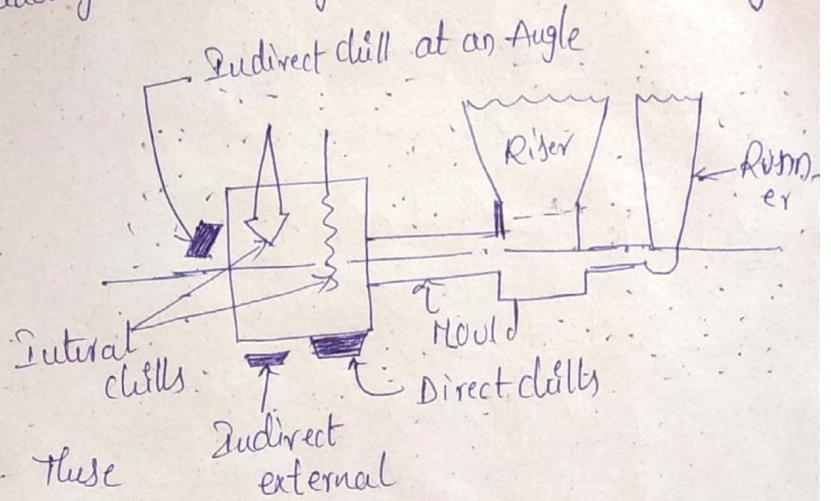 Indirect chill at an Angle
Riser
Runn-
er
Mould
Internal
chills
Direct chills
Indirect
external
These